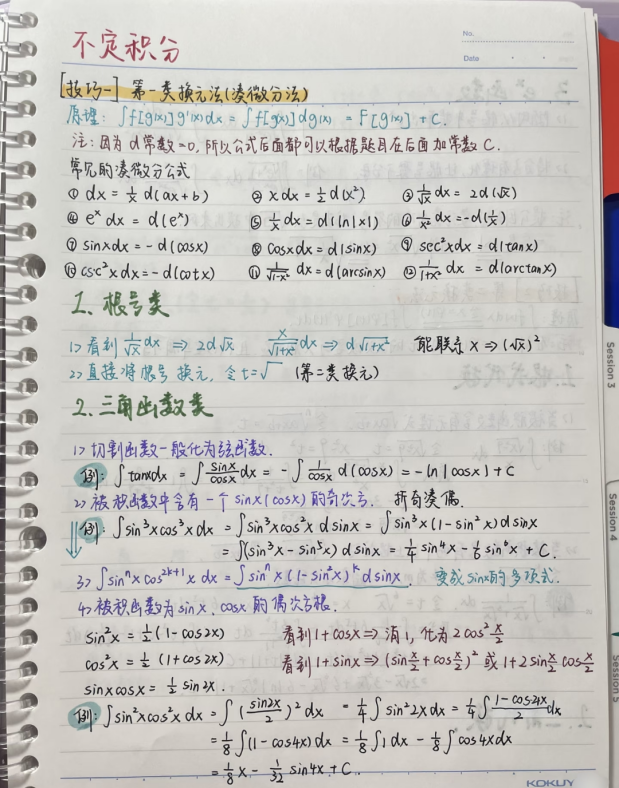 No.
Date
不定积分
[技巧一] 第一类换元法(凑微分法)
原理: ∫f[g(x)]g'(x)dx = ∫f[g(x)]dg(x) = F[g(x)]+C.
注:因为d常数=0,所以公式后面都可以根据题目在后面加常数C.
常见的凑微分公式
① dx = 1/x d(ax+b) ② xdx = 1/2 d(x²) ③ 1/√x dx = 2d(√x)
④ eˣdx = d(eˣ) ⑤ 1/x dx = d(ln|x|) ⑥ 1/x² dx = -d(1/x)
⑦ sinxdx = -d(cosx) ⑧ cosxdx = d(sinx) ⑨ sec²xdx = d(tanx)
⑩ csc²xdx = -d(cotx) ⑪ 1/√(1-x²) dx = d(arcsinx) ⑫ 1/(1+x²) dx = d(arctanx)
1. 根号类
1> 看到 1/√x dx ⇒ 2d√x x/√(1+x²) dx ⇒ d√(1+x²) 能联系 x ⇒ (√x)²
2> 直接将根号换元,令t=√ (第二类换元)
2. 三角函数类
1> 切割函数一般化为弦函数.
例: ∫tanxdx = ∫ sinx/cosx dx = -∫ 1/cosx d(cosx) = -ln|cosx|+C
2> 被积函数中含有一个sinx(cosx)的奇次方. 拆奇凑偶.
例: ∫sin³xcos³xdx = ∫sin³xcos²xdsinx = ∫sin³x(1-sin²x)dsinx
= ∫(sin³x-sin⁵x)dsinx = 1/4 sin⁴x - 1/6 sin⁶x + C.
3> ∫sinⁿxcos²ᵏ⁺¹xdx = ∫sinⁿx(1-sin²x)ᵏdsinx. 变成sinx的多项式.
4> 被积函数为sinx.cosx的偶次方幂.
sin²x = 1/2(1-cos2x) 看到1+cosx ⇒ 消1,化为2cos² x/2
cos²x = 1/2(1+cos2x) 看到1+sinx ⇒ (sin x/2 + cos x/2)² 或 1+2sin x/2 cos x/2
sinxcosx = 1/2 sin2x.
例: ∫sin²xcos²xdx = ∫(sin2x/2)²dx = 1/4∫sin²2xdx = 1/4∫ (1-cos4x)/2 dx
= 1/8∫(1-cos4x)dx = 1/8∫1dx - 1/8∫cos4xdx
= 1/8 x - 1/32 sin4x + C.
KOKUY
Session 3
Session 4
Session 5